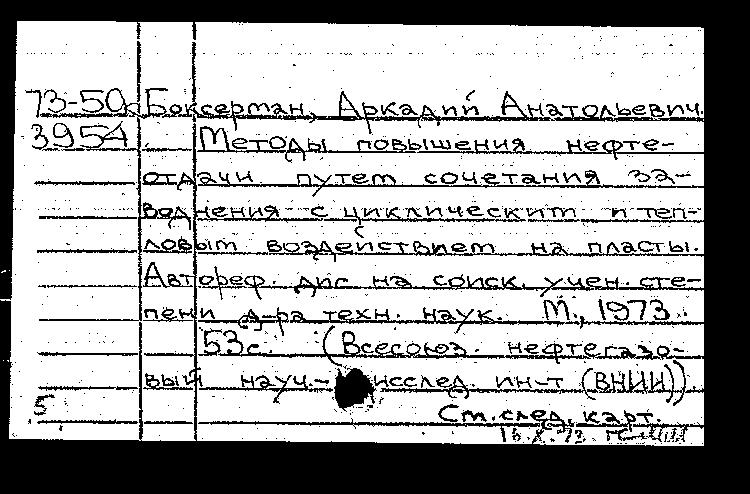 73-50к Боксерман, Аркадий Анатольевич.
3954 Методы повышения нефте-
отдачи путем сочетания за-
воднения с циклическим и теп-
ловым воздействием на пласты.
Автореф. дис на соиск. учен. сте-
пени д-ра техн. наук. М., 1973.
53с. (Всесоюз. нефтегазо-
вый науч.- исслед. ин-т (ВНИИ)).
5 См. след. карт.
16.X.73.